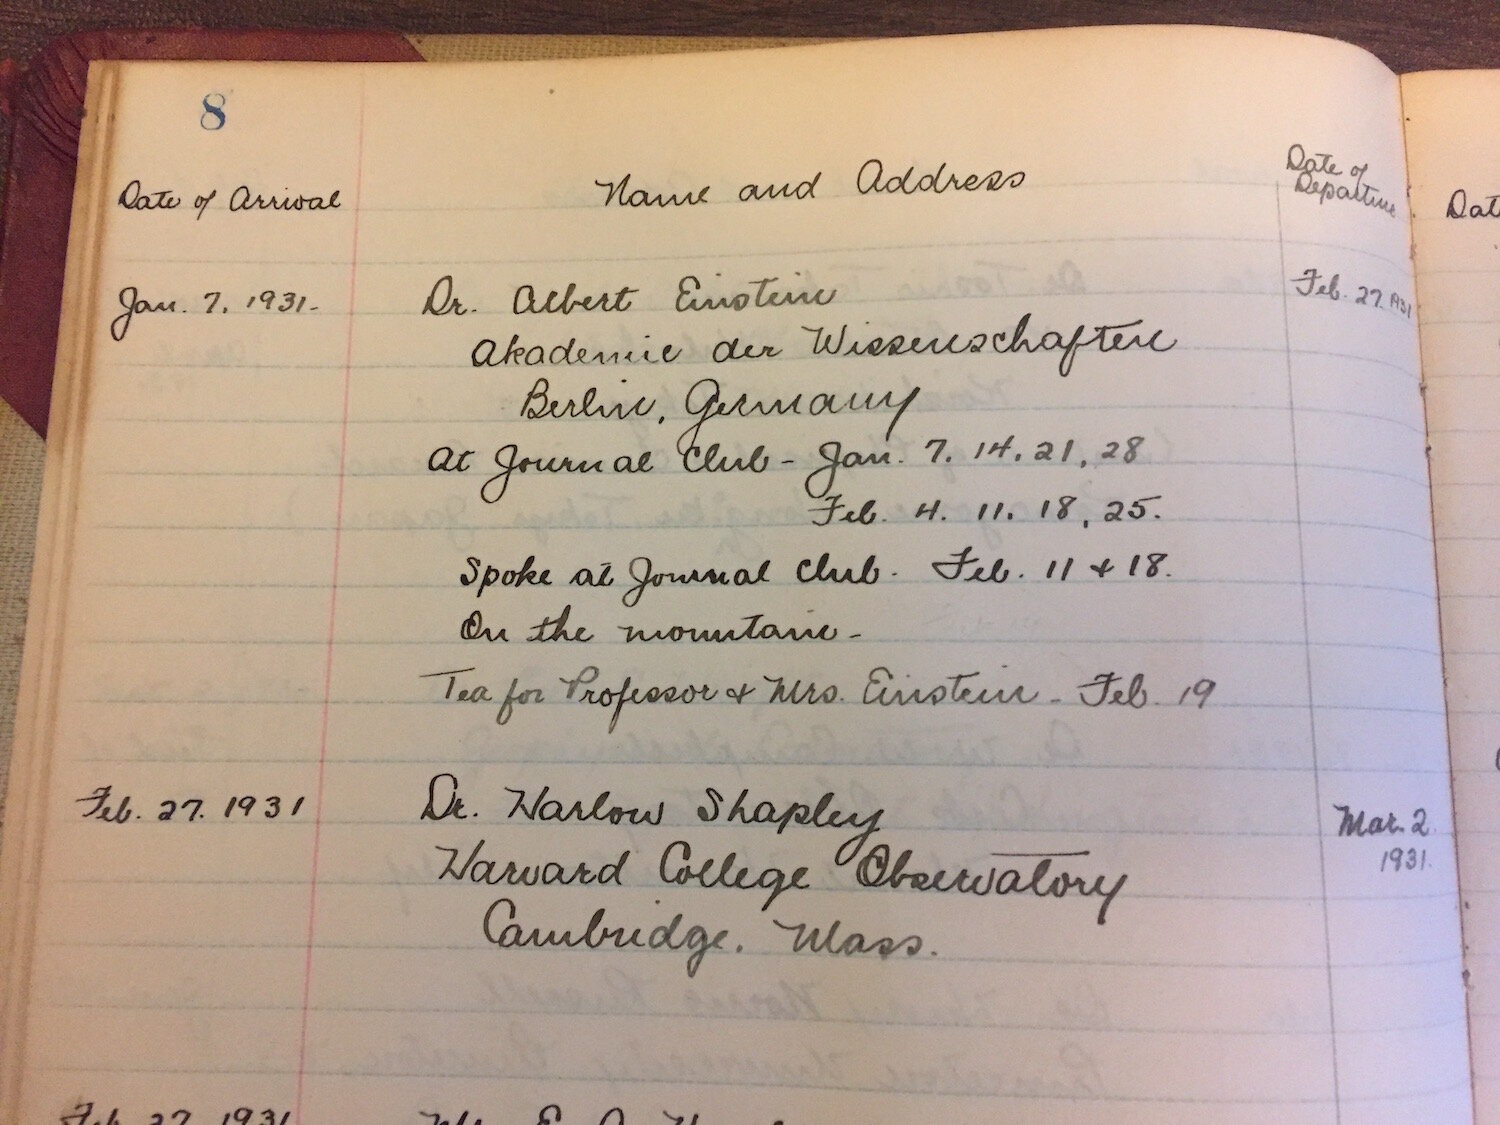 8
Date of Arrival Name and Address Date of Departure Dat
Jan. 7. 1931. Dr. Albert Einstein Feb. 27. 1931
Akademie der Wissenschaften
Berlin, Germany
At Journal Club - Jan. 7. 14. 21, 28
Feb. 4. 11. 18, 25.
Spoke at Journal Club. Feb. 11 & 18.
On the mountain -
Tea for Professor & Mrs. Einstein - Feb. 19
Feb. 27. 1931 Dr. Harlow Shapley Mar. 2
Harvard College Observatory 1931.
Cambridge. Mass.
Feb. 27. 1931